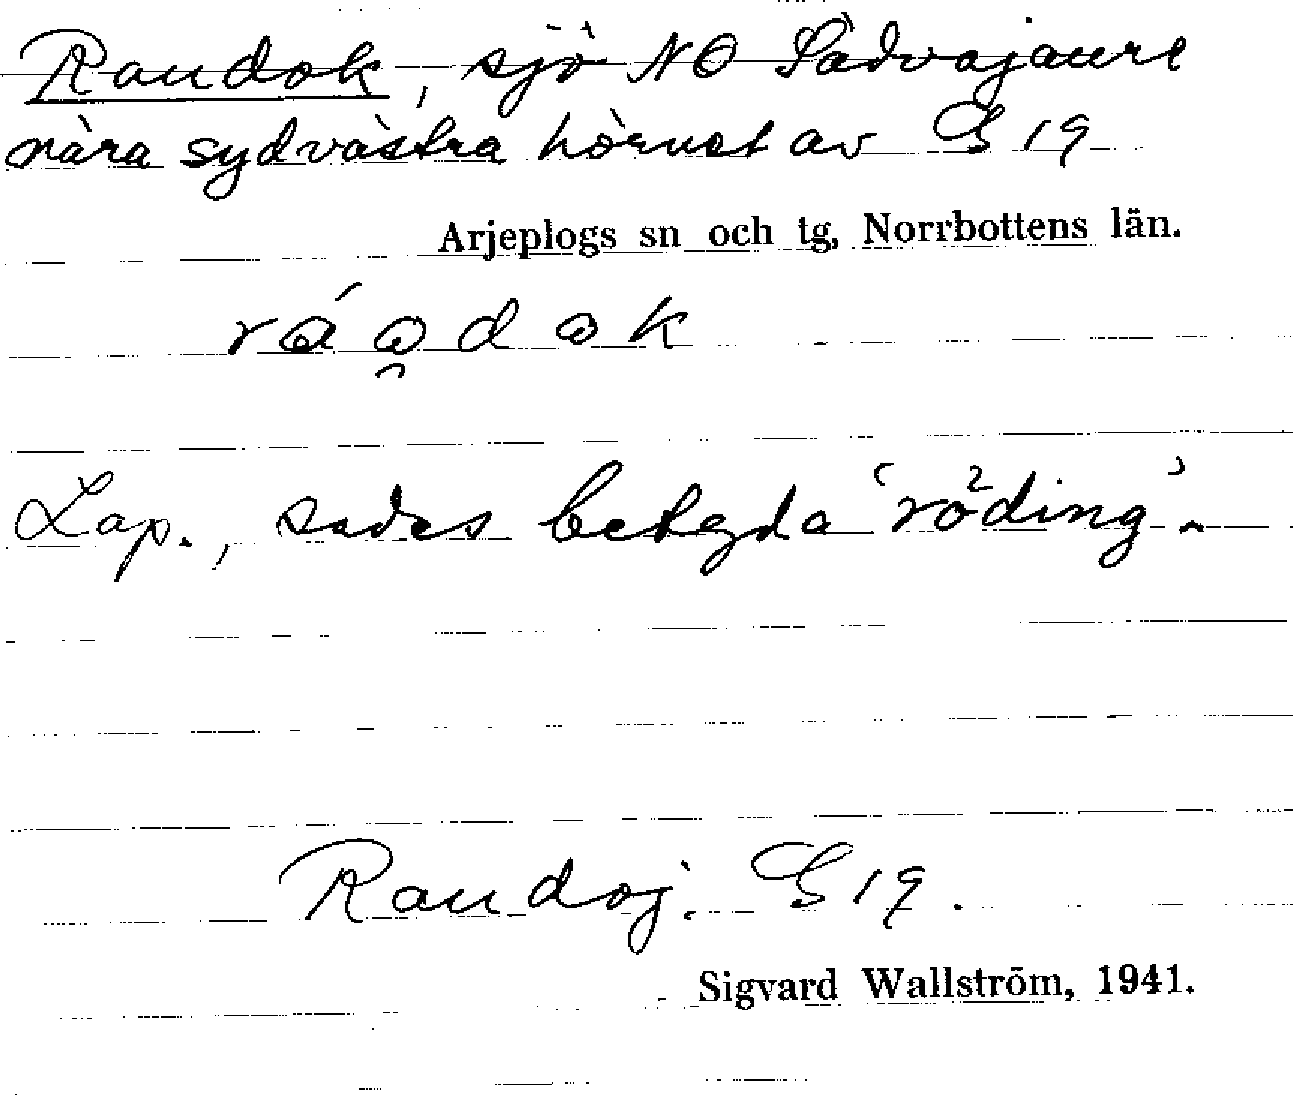 Raudok, sjö NO Sädvajaure
nära sydvästra hörnet av G 19
Arjeplogs sn och tg, Norrbottens län.
Lap., sades betyda 'röding'.
Raudoj. G 19.
Sigvard Wallström, 1941.